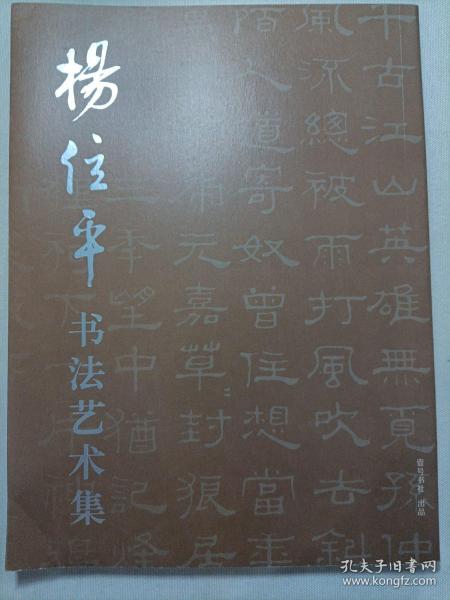 楊位平
书法艺术集
千古江山英雄無覓孫仲
風流總被雨打風吹去斜
陌人道寄奴曾住想當年
元嘉草〻封狼居
三季望中猶記烽
壹号书社 出品
孔夫子旧书网
www.kongfz.com